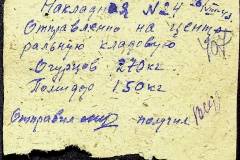 Накладная № 24
Отправленно на цент
ральную кладовую
Огурцов 270 кг
Помидор 150 кг
Отправил получил